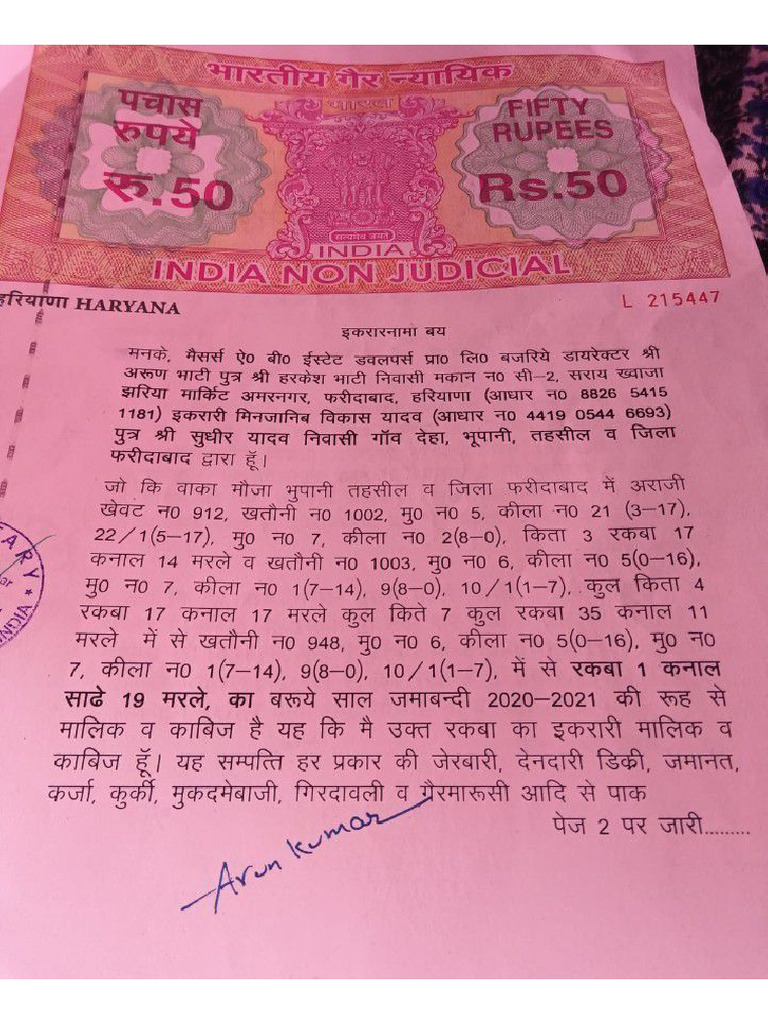 भारतीय गैर न्यायिक
पचास
रुपये
रु.50
भारत
FIFTY
RUPEES
Rs.50
सत्यमेव जयते
INDIA
INDIA NON JUDICIAL
हरियाणा HARYANA
L 215447
इकरारनामा बय
मनके, मैसर्स ऐ0 बी0 ईस्टेट डवलपर्स प्रा0 लि0 बजरिये डायरेक्टर श्री
अरूण भाटी पुत्र श्री हरकेश भाटी निवासी मकान न0 सी–2, सराय ख्वाजा
झरिया मार्किट अमरनगर, फरीदाबाद, हरियाणा (आधार न0 8826 5415
1181) इकरारी मिनजानिब विकास यादव (आधार न0 4419 0544 6693)
पुत्र श्री सुधीर यादव निवासी गॉव देहा, भूपानी, तहसील व जिला
फरीदाबाद द्वारा हूँ।
जो कि वाका मौजा भुपानी तहसील व जिला फरीदाबाद में अराजी
खेवट न0 912, खतौनी न0 1002, मु0 न0 5, कीला न0 21 (3–17),
22/1(5–17), मु0 न0 7, कीला न0 2(8–0), किता 3 रकबा 17
कनाल 14 मरले व खतौनी न0 1003, मु0 न0 6, कीला न0 5(0–16),
मु0 न0 7, कीला न0 1(7–14), 9(8–0), 10/1(1–7), कुल किता 4
रकबा 17 कनाल 17 मरले कुल किते 7 कुल रकबा 35 कनाल 11
मरले में से खतौनी न0 948, मु0 न0 6, कीला न0 5(0–16), मु0 न0
7, कीला न0 1(7–14), 9(8–0), 10/1(1–7), में से रकबा 1 कनाल
साढे 19 मरले, का बरूये साल जमाबन्दी 2020–2021 की रूह से
मालिक व काबिज है यह कि मै उक्त रकबा का इकरारी मालिक व
काबिज हूँ। यह सम्पत्ति हर प्रकार की जेरबारी, देनदारी डिकी, जमानत,
कर्जा, कुर्की, मुकदमेबाजी, गिरदावली व गैरमारूसी आदि से पाक
पेज 2 पर जारी.........
Arun Kumar